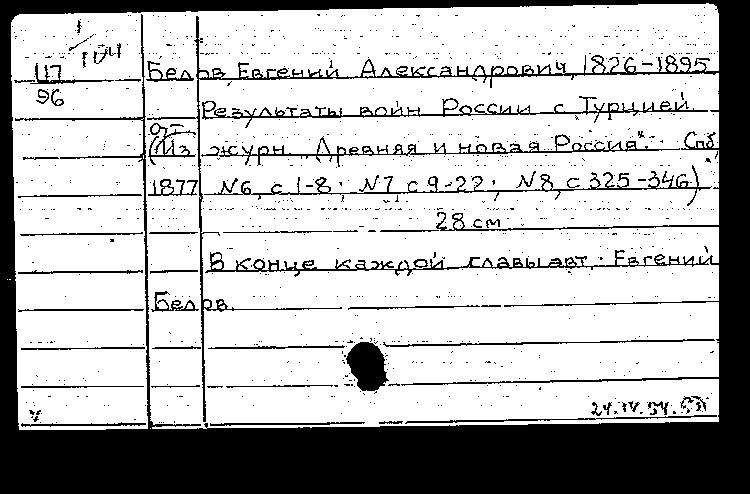 1/104
117
96
Белов, Евгений Александрович, 1826-1895
Результаты войн России с Турцией
от-
(Из журн. „Древняя и новая Россия". Спб,
1877, №6, с 1-8; №7, с 9-22; №8, с 325-346)
28 см
В конце каждой главы авт.: Евгений
Белов.